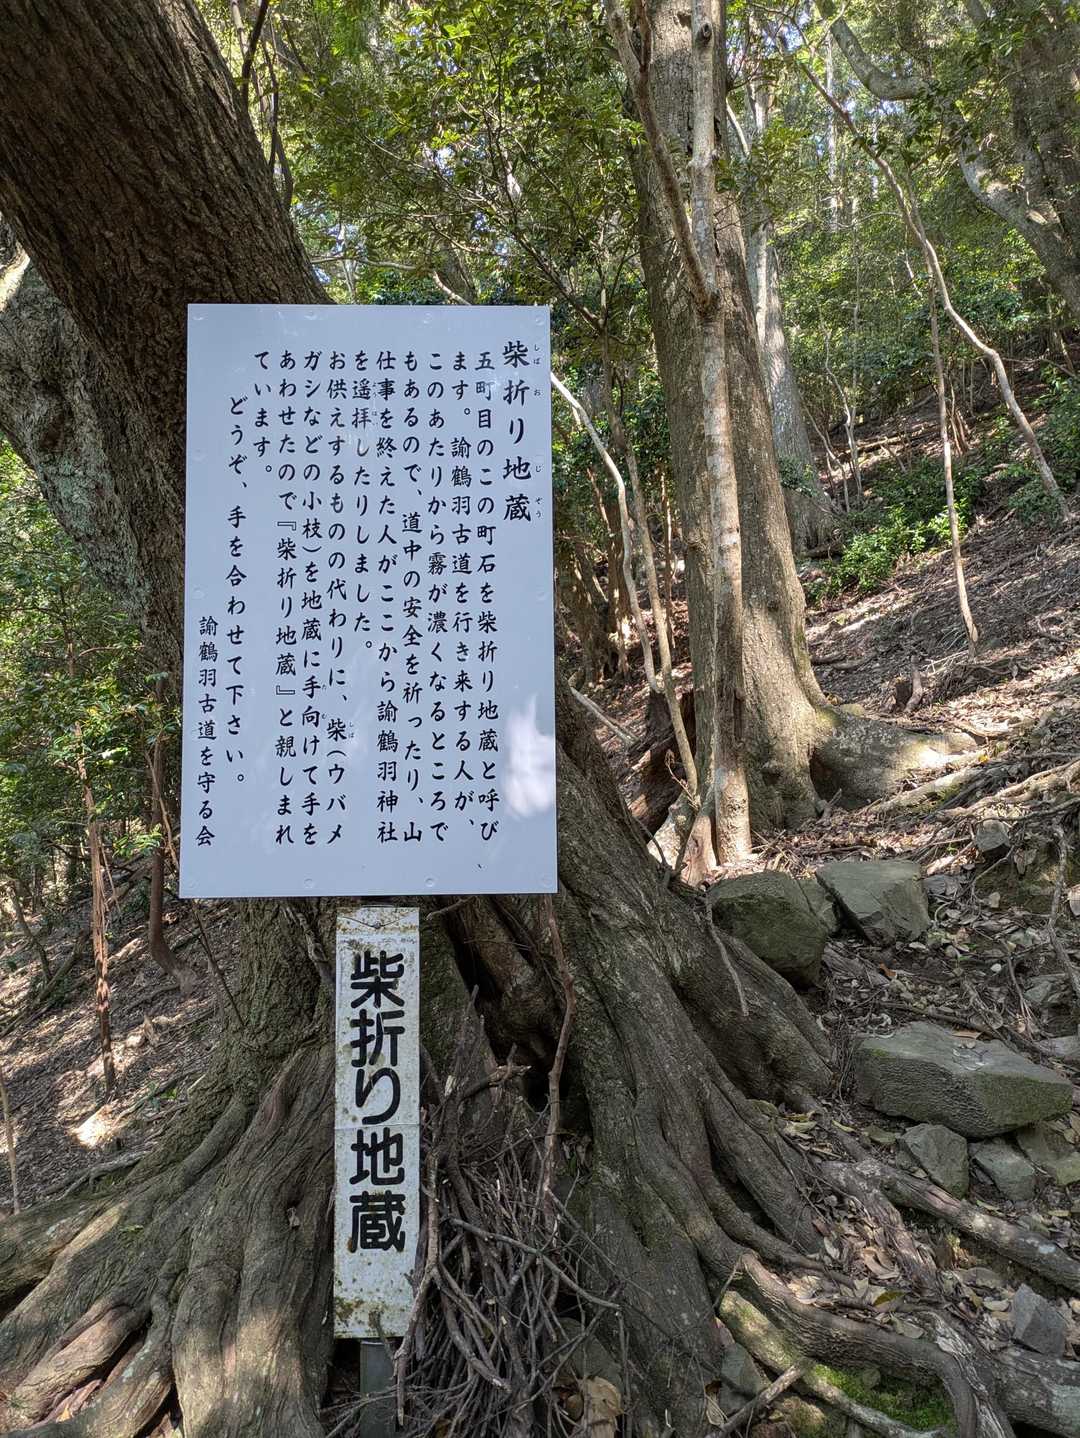 柴折り地蔵
しば お じぞう
五町目のこの町石を柴折り地蔵と呼び
ます。諭鶴羽古道を行き来する人が、
このあたりから霧が濃くなるところで
もあるので、道中の安全を祈ったり、山
仕事を終えた人がここから諭鶴羽神社
を遥拝したりしました。
ようはい
お供えするものの代わりに、柴(ウバメ
しば
ガシなどの小枝)を地蔵に手向けて手を
たむ
あわせたので『柴折り地蔵』と親しまれ
ています。
どうぞ、手を合わせて下さい。
諭鶴羽古道を守る会
柴折り地蔵